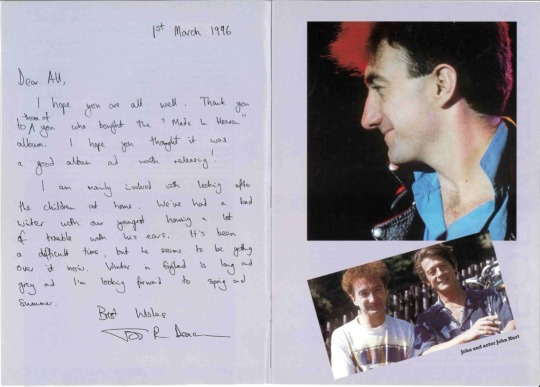 1st March 1996
Dear All,
I hope you are all well. Thank you
to those of you who bought the "Made In Heaven"
album. I hope you thought it was
a good album ad worth releasing!
I am mainly involved with looking after
the children at home. We've had a bad
winter with our youngest having a lot
of trouble with his ears. It's been
a difficult time, but he seems to be getting
over it now. Winter in England is long and
grey and I'm looking forward to spring and
summer.
Best Wishes
R Deacon
John and actor John Hurt